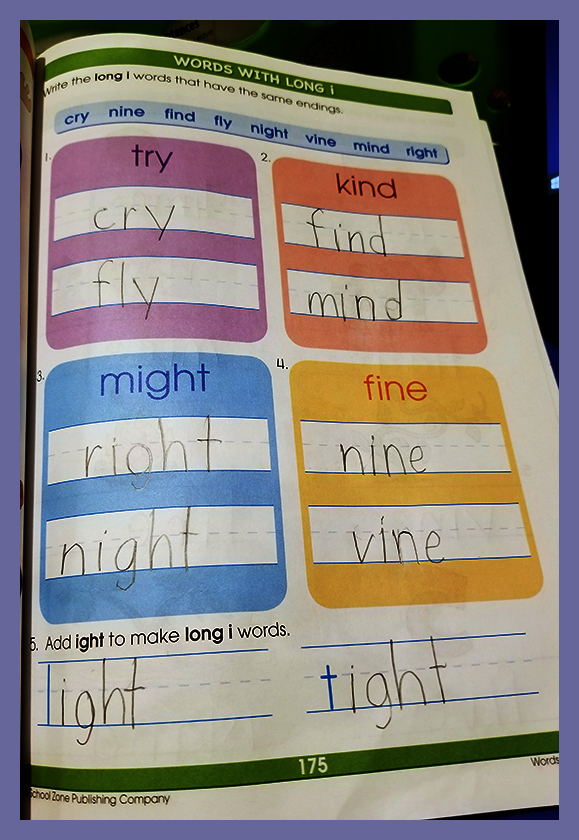 WORDS WITH LONG i
Write the long i words that have the same endings.
cry nine find fly night vine mind right
1.
try
cry
fly
2.
kind
find
mind
3.
might
right
night
4.
fine
nine
vine
5. Add ight to make long i words.
light
tight
175
Words
School Zone Publishing Company